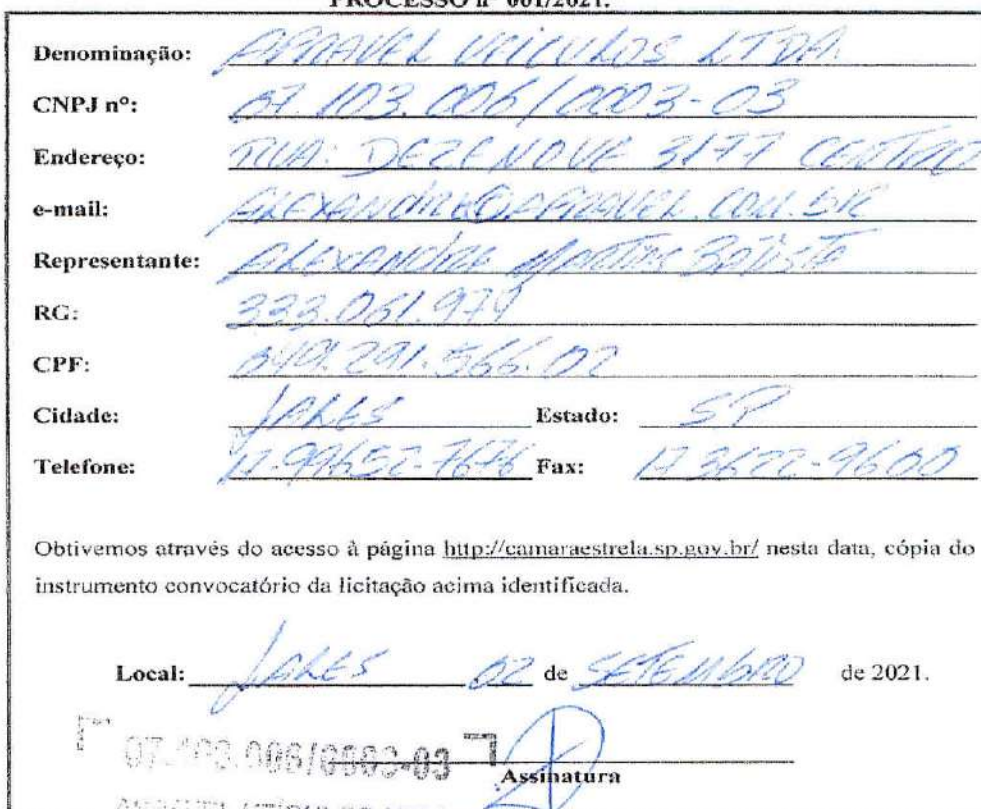 PROCESSO nº 001/2021.
Denominação: APRAVEL VEÍCULOS LTDA.
CNPJ nº: 07.103.006/0003-03
Endereço: RUA: DEZENOVE 3177 CENTRO
e-mail: ALEXANDRE@APRAVEL.COM.BR
Representante: ALEXANDRE MARTINS BATISTA
RG: 333.061.974
CPF: 049.291.566.02
Cidade: JALES Estado: SP
Telefone: 17.99652-7676 Fax: 17 3622-9600
Obtivemos através do acesso à página http://camaraestrela.sp.gov.br/ nesta data, cópia do
instrumento convocatório da licitação acima identificada.
Local: JALES 02 de SETEMBRO de 2021.
07.103.006/0003-03
Assinatura